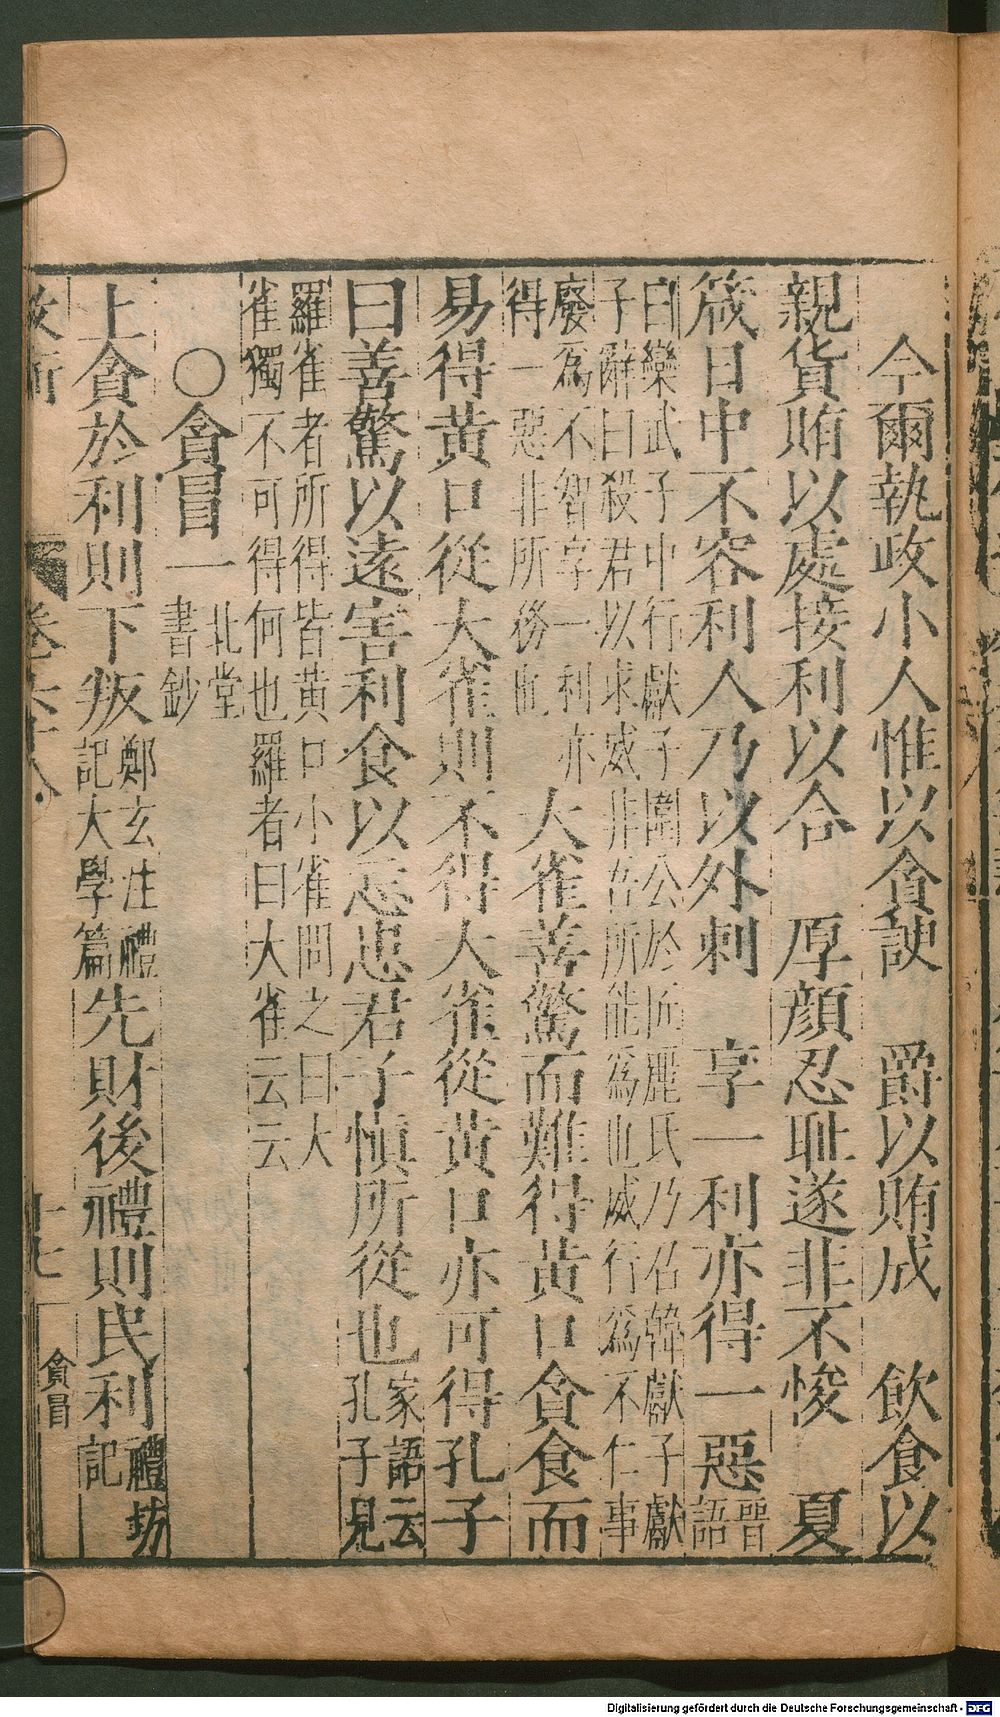 今爾執政小人惟以貪諛　爵以賄成　飲食以
親貨賄以處接利以合　厚顔忍耻遂非不悛　夏
箴日中不容利人乃以外刺　享一利亦得一惡晉語
曰欒武子中行獻子圍公於匠麗氏乃召韓獻子獻
子辭曰殺君以求威非吾所能爲也威行爲不仁事
廢爲不智享一利亦
得一惡非所務也
大雀善驚而難得黄口貪食而
易得黄口從大雀則不得大雀從黄口亦可得孔子
曰善驚以遠害利食以忘患君子愼所從也家語云孔子見
羅雀者所得皆黄口小雀問之曰大
雀獨不可得何也羅者曰大雀云云
○貪冒一北堂書鈔
上貪於利則下叛鄭玄注禮記大學篇先財後禮則民利禮坊記
卷
十七
貪冒
Digitalisierung gefördert durch die Deutsche Forschungsgemeinschaft - DFG